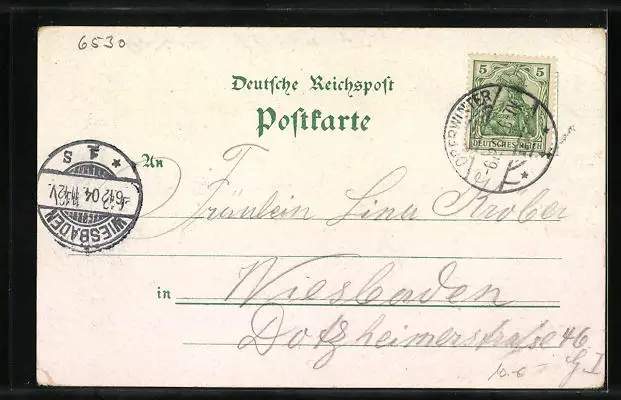 6530
Deutsche Reichspost
Postkarte
5 5
DEUTSCHES REICH
OBERWINTER
1 S
6.12.04. 11-12V.
WIESBADEN
An Fräulein Lina Krober
in Wiesbaden
Dotzheimerstraße 46